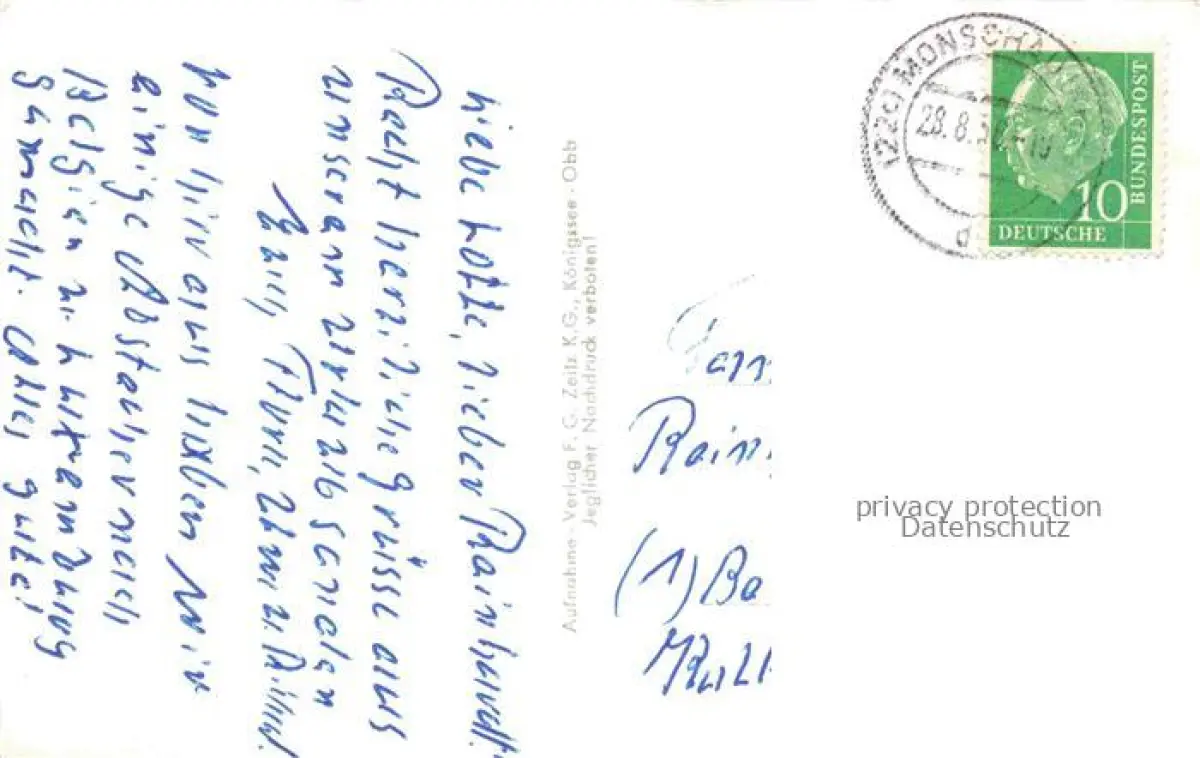 Liebe Lotte, lieber Reinhardt!
Recht herzliche Grüsse aus
unseren Urlaubsorten
Euch
Von hier aus haben wir
einige Abstecher nach
Belgien u. Luxemburg
gemacht. Alles gute!
Aufnahme - Verlag F. G. Zeitz K.G., Königssee - Obb
Jeglicher Nachdruck verboten!
(22c) MONSCHAU
28.8.
d
10
DEUTSCHE
BUNDESPOST
Fam
Rein
(1) Be
privacy protection
Datenschutz